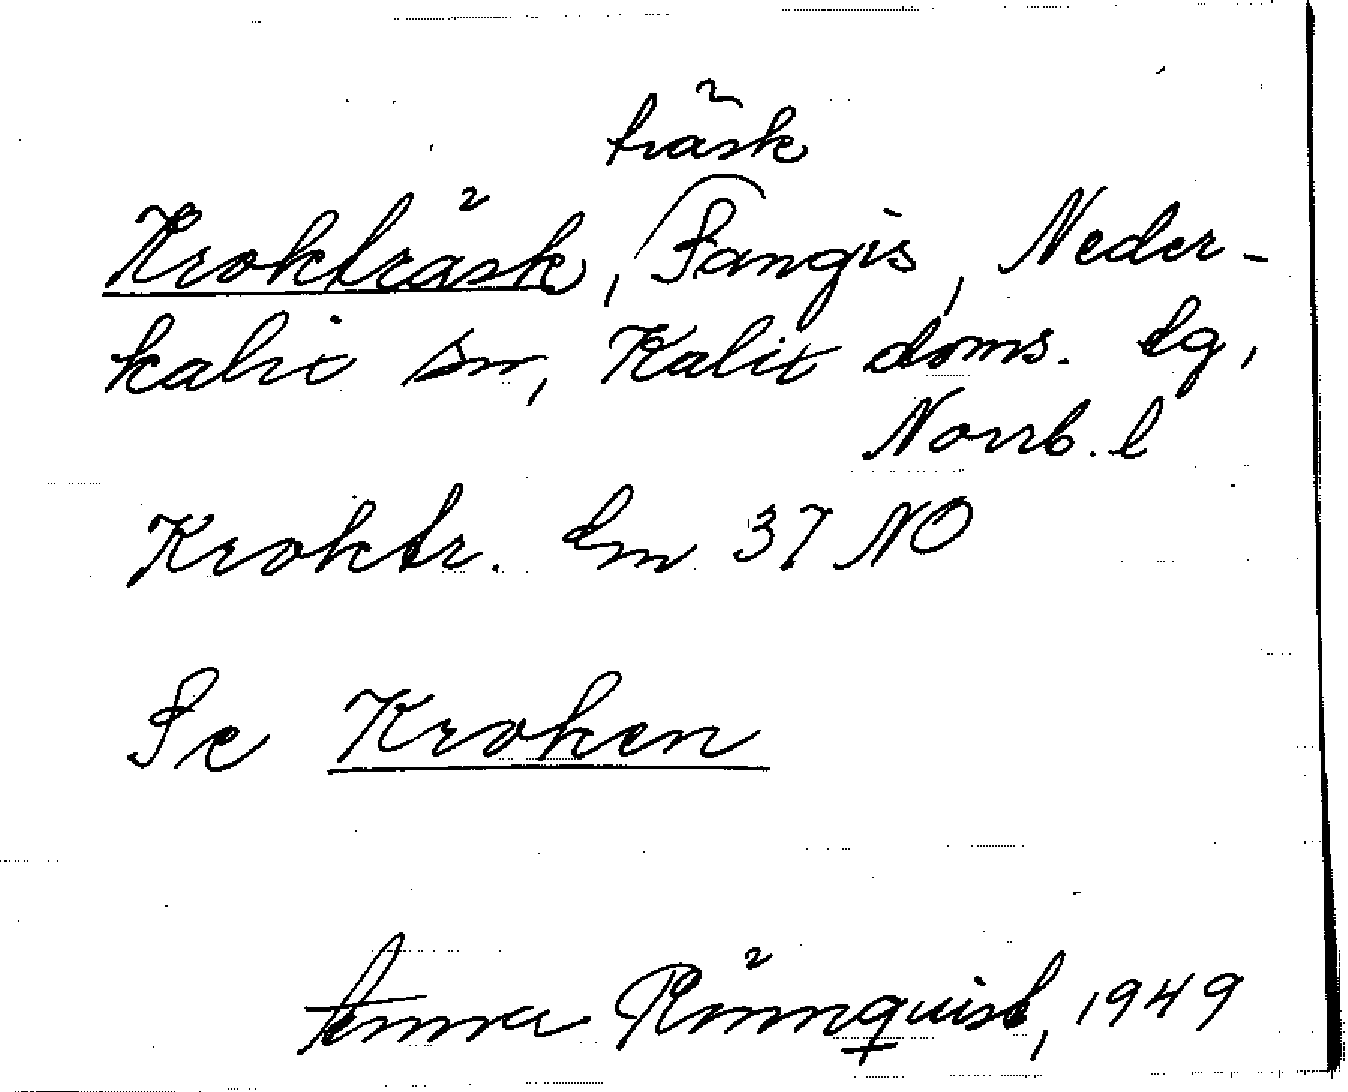 träsk
Krokträsk, Sangis, Neder-
kalix sn, Kalix doms. lg,
Norrb. l
Kroktr. Em 37 NO
Se Kroken
Anna Rönnquist, 1949